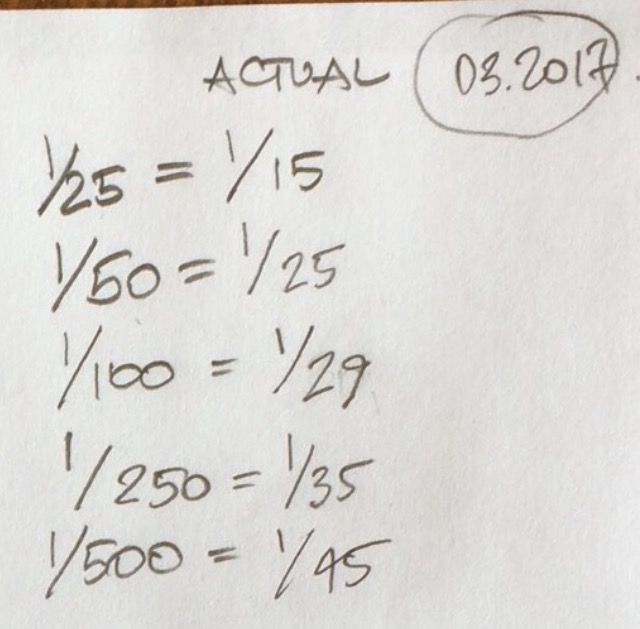 ACTUAL 03.2017
1/25 = 1/15
1/50 = 1/25
1/100 = 1/29
1/250 = 1/35
1/500 = 1/45